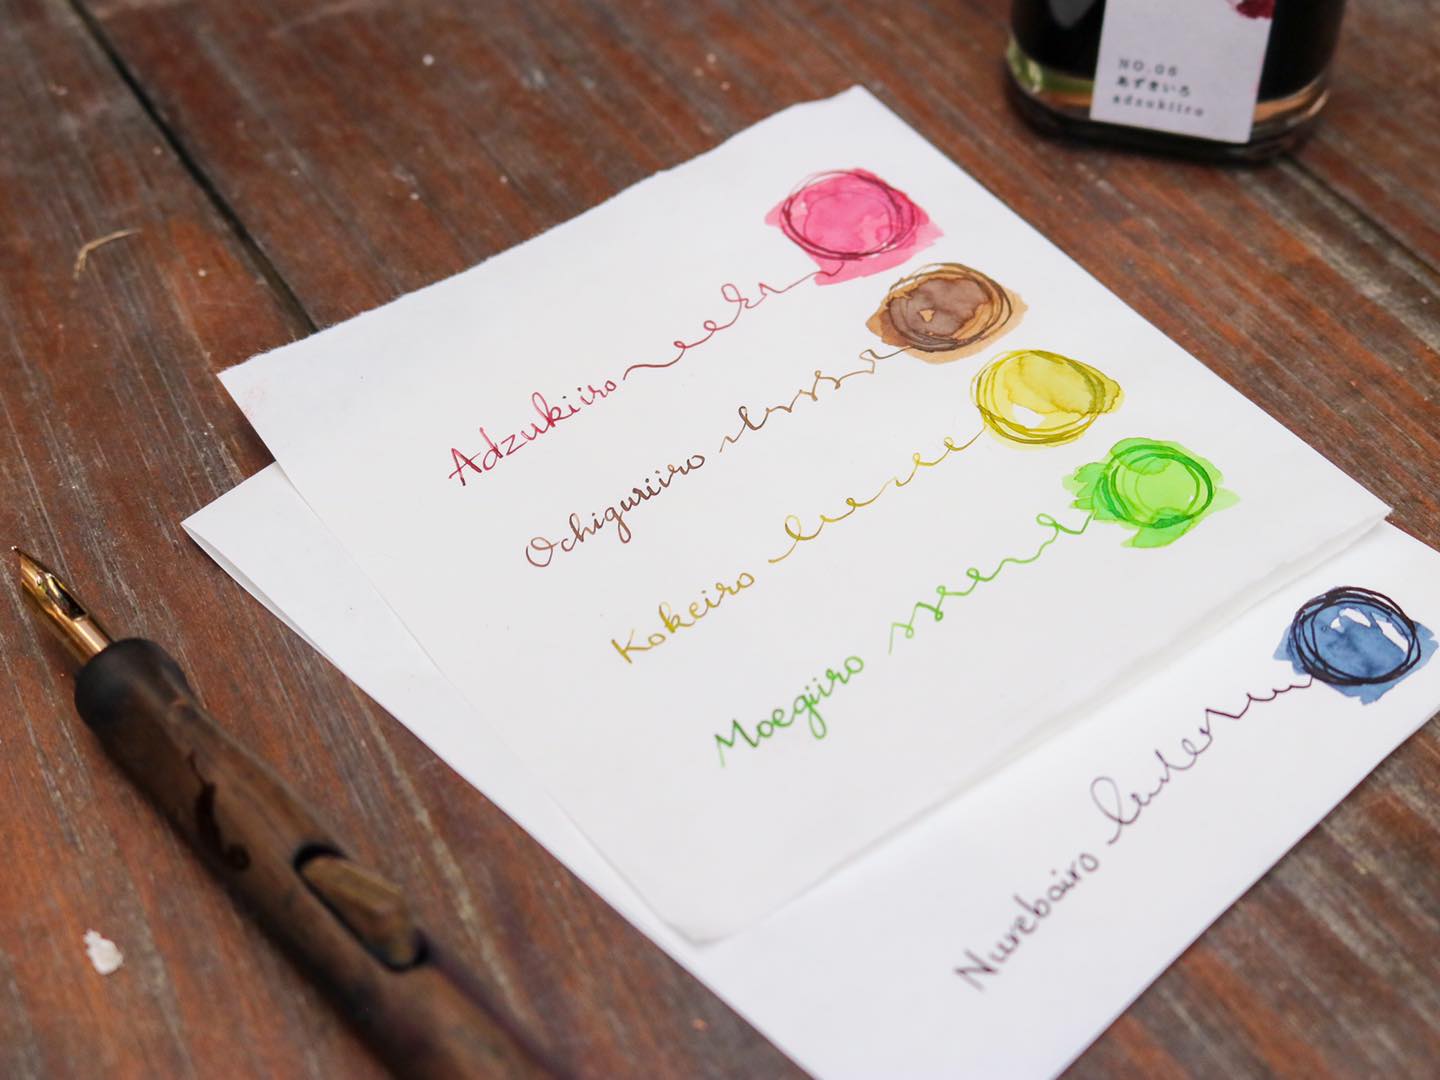 NO.06
あずきいろ
adzukiiro
Adzukiiro
Ochiguriiro
Kokeiro
Moegiiro
Nurebairo